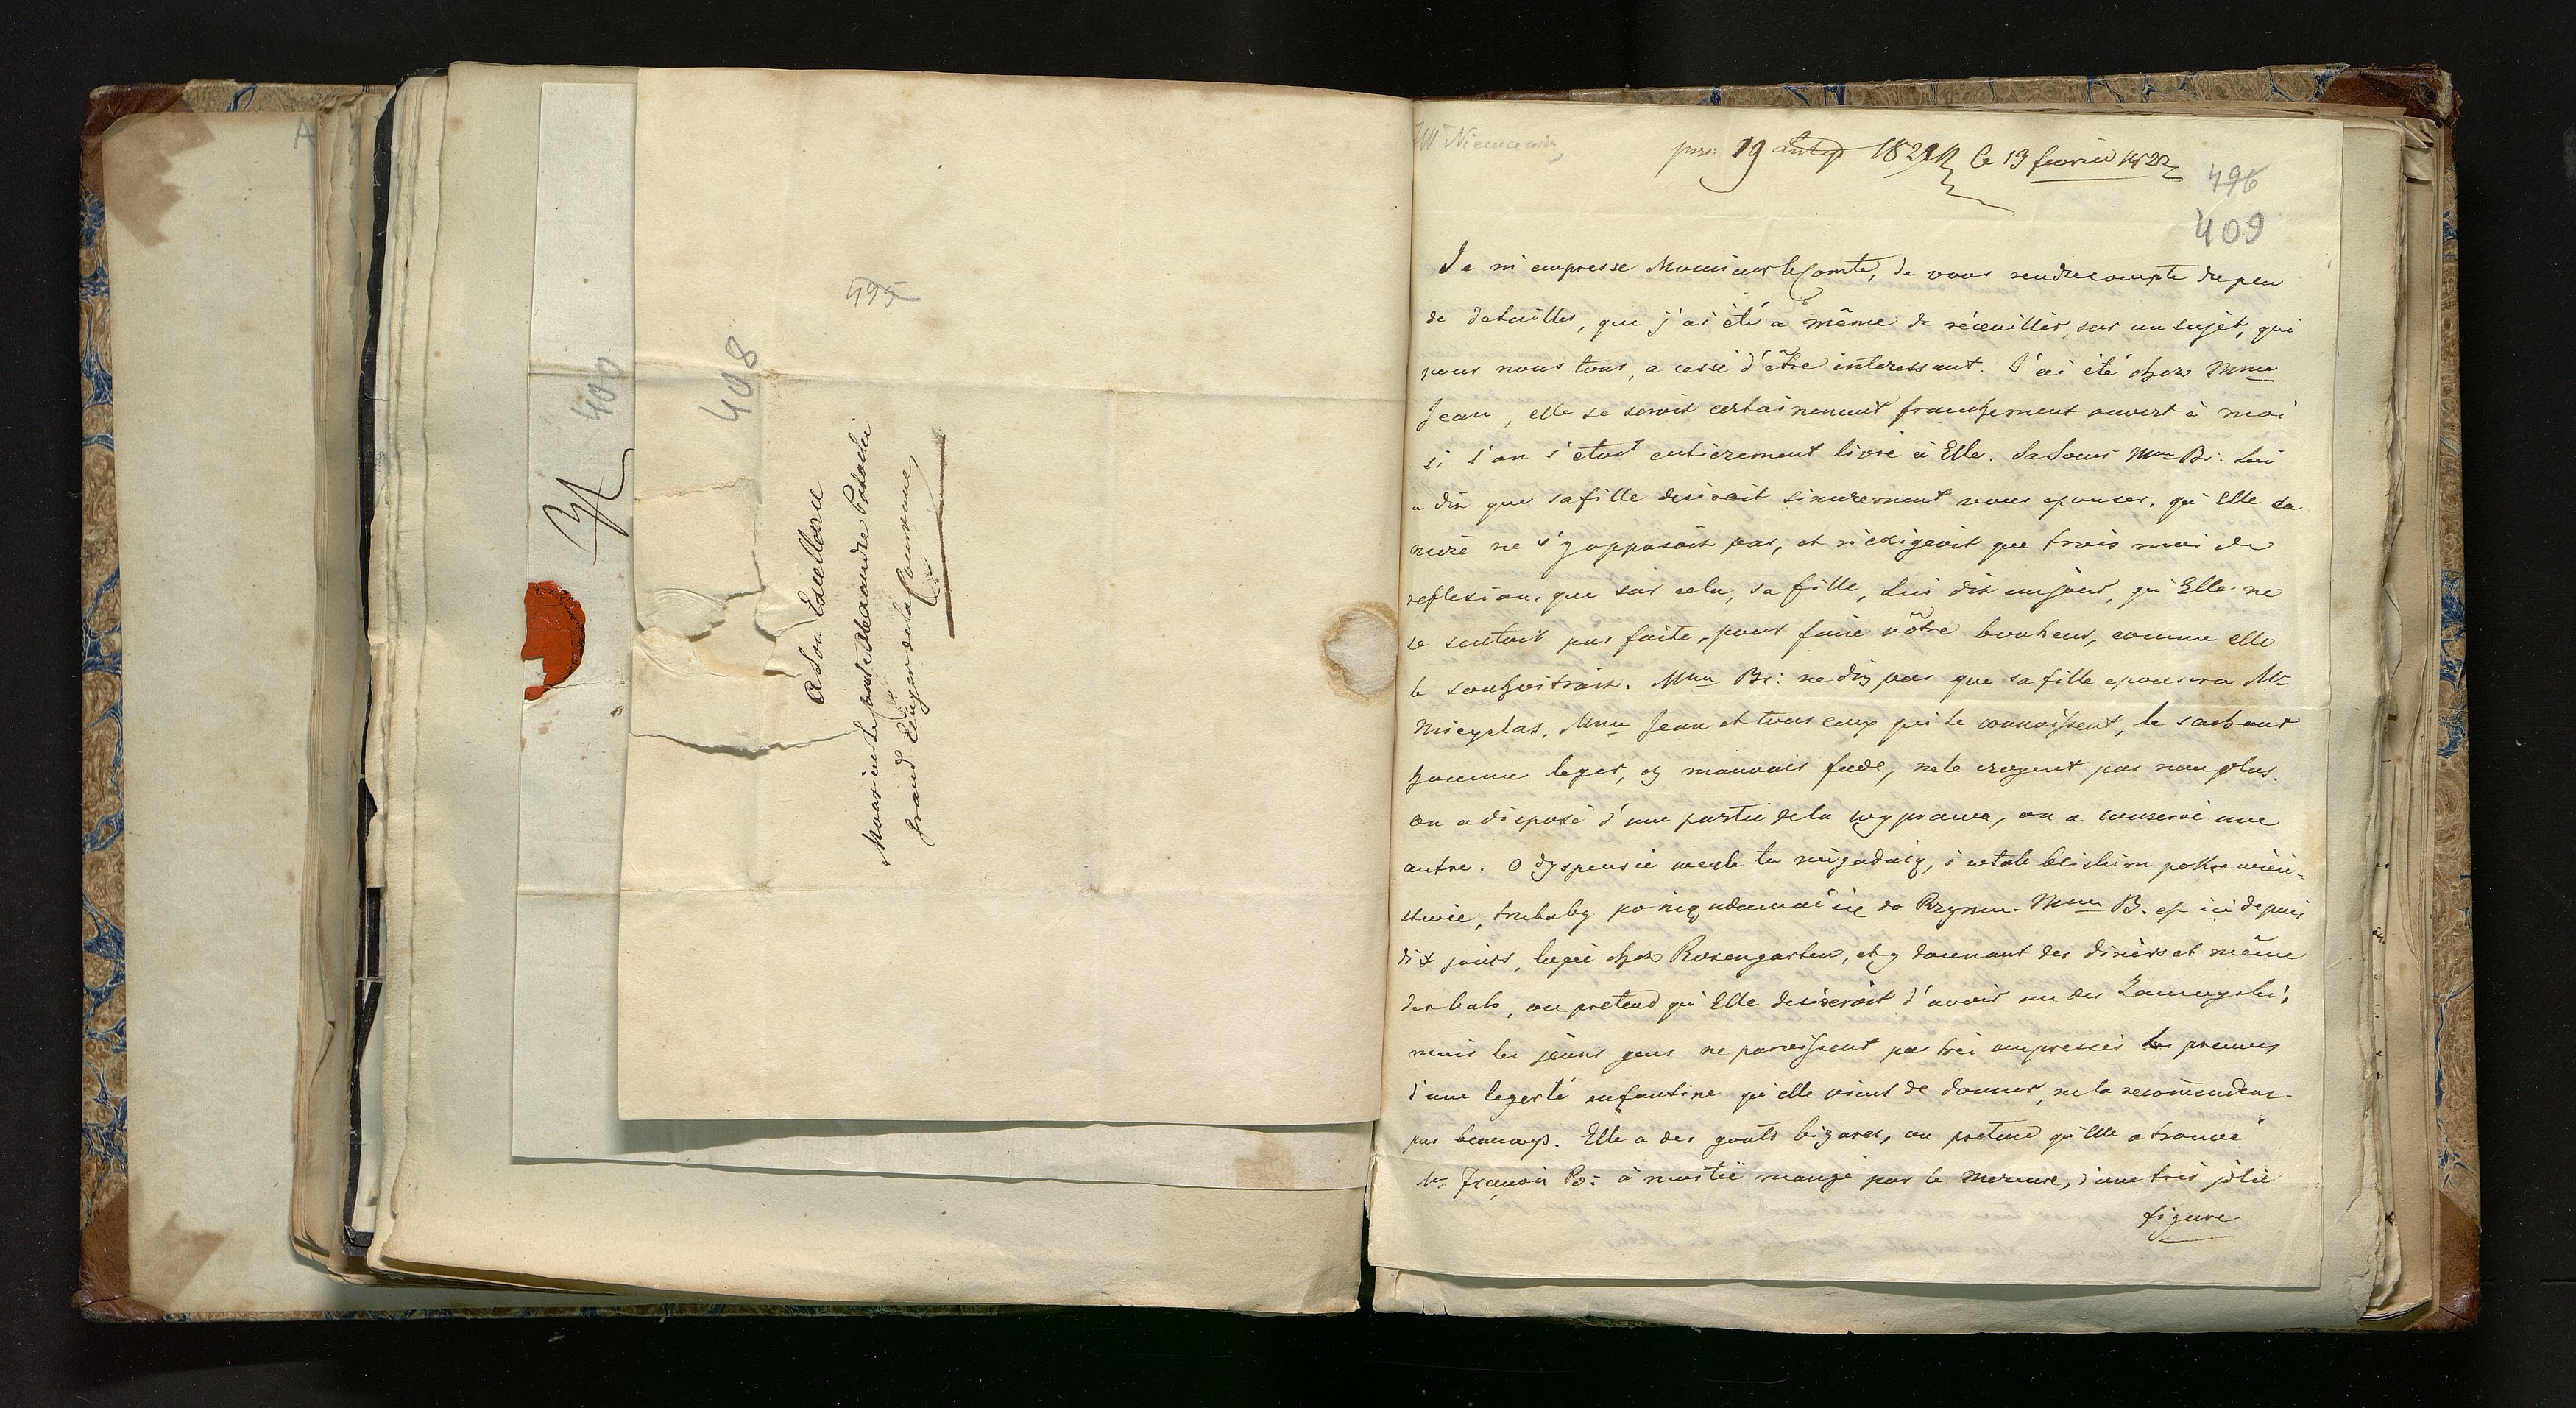 A
400
408
495
A Son Excellence
Monsieur le Comte Alexandre Potocki
Grand Ecuyer de la Couronne
Mr Niemcewicz
19 1821 le 19 fevrier 1822
496
409
Je m'empresse Monsieur le Comte, de vous rendre compte du peu
de detailles, que j'ai été a même de réceuillir, sur un sujèt, qui
pour nous tous, a cessé d'être interessant. J'ai été chez Mme
Jean, elle se seroit certainement franchement ouvert à moi
si l'on s'etoit entierement livré à Elle. Sa Soeur Mme Br: Lui
a dit que sa fille desiroit sincerement vous epouser, qu'Elle sa
mère ne s'y opposoit pas, et n'exigeoit que trois moi de
reflexion, que sur cela, sa fille, Lui dit un jour, qu'Elle ne
se sentoit pas faite, pour faire vôtre bonheur, comme elle
le souhaitroit. Mme Br: ne dit pas que sa fille epousera Mr
Mieczslas, Mme Jean et tous ceux qui le connoissent, le sachant
homme leger, et mauvais, ne le croyent pas non plus.
on a disposé d'une partie de la wyprawa, on a conservé une
autre. O dyspensie wcale tu niegadaią, i w tak bliskim pokrewień-
stwie, trzebaby po nią udawać się do Rzymu. Mme B. est ici depuis
dix jours, logée chez Rosengarten, et y donnant des diners et même
des bals, on pretend qu'Elle desireroit d'avoir un des Zamoyski;
mais les jeunes gens ne paroissent pas très empressés les preuves
d'une legerté enfantine qu'elle vient de donner, ne la recommendent
pas beaucoup. Elle a des gouts bizares, on pretend qu'Elle a trouvé
Mr François Po: à moitié mangé par le mercure, d'une très jolie
figure